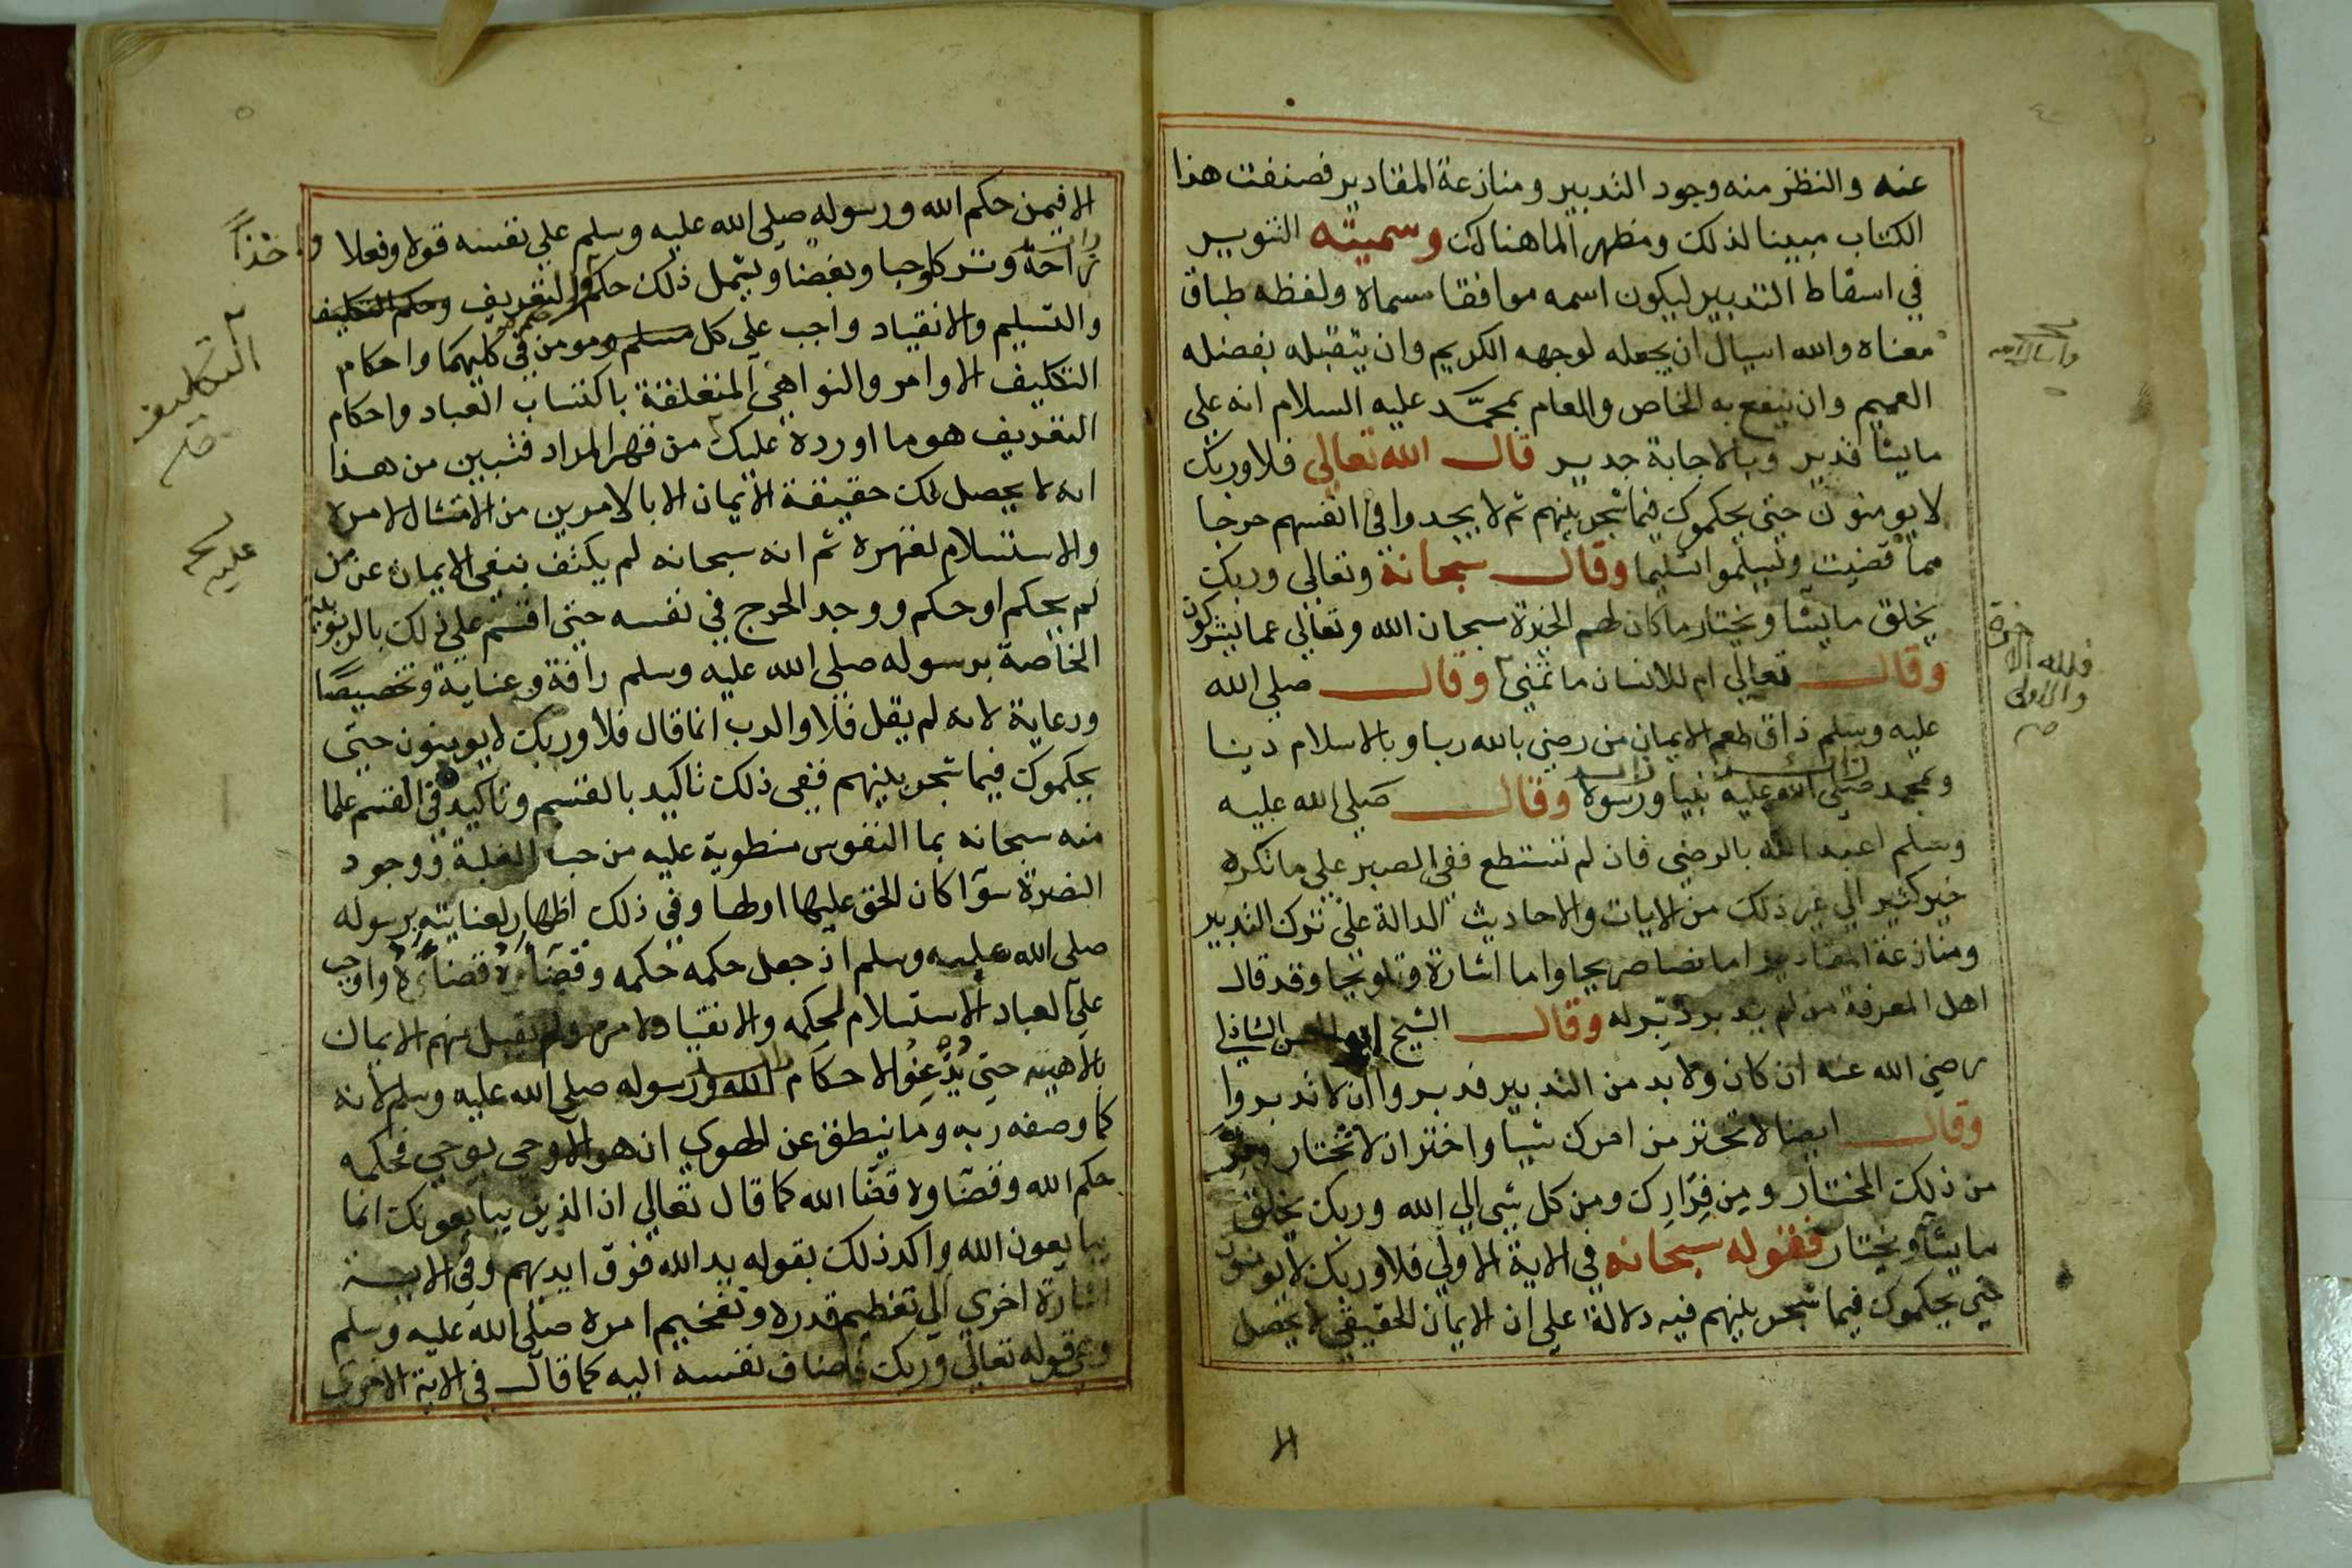 عنه والنظر منه وجود التدبير ومنازعة المقادير فصنفت هذا
الكتاب مبينا لذلك ومظهرا لما هنالك وسميته التنوير
في اسقاط التدبير ليكون اسمه موافقا مسماه ولفظه طباق
معناه والله اسيال ان يجعله لوجهه الكريم وان يتقبله بفضله
العميم وان ينفع به الخاص والعام بمحمد عليه السلام انه علي
مايشا قدير وبالاجابة جدير قال الله تعالي فلا وربك
لا يومنون حتي يحكموك فيما شجر بينهم ثم لا يجدوا في انفسهم حرجا
مما قضيت ويسلموا تسليما وقال سبحانه وتعالي وربك
يخلق مايشا ويختار ما كان لهم الخيرة سبحان الله وتعالي عما يشركون
وقال تعالي ام للانسان ما تمني وقال صلي الله
فلله الاخرة
والاولى
صح
عليه وسلم ذاق طعم الايمان من رضي بالله ربا وبالاسلام دينا
وبمحمد صلي الله عليه نبيا ورسولا وقال صلي الله عليه
وسلم اعبد الله بالرضي فان لم تستطع ففي الصبر علي ما تكره
خير كثير الي غير ذلك من الايات والاحاديث الدالة علي ترك التدبير
ومنازعة المقادير اما نصا صريحا واما اشارة وتلويحا وقد قال
اهل المعرفة من لم يدبر دبر له وقال الشيخ ابو الحسن الشاذلي
رضي الله عنه ان كان ولا بد من التدبير فدبروا ان لا تدبروا
وقال ايضا لا تختر من امرك شيا واختر ان لا تختار وفر
من ذلك المختار ومن فرارك ومن كل شي الي الله وربك يخلق
مايشا ويختار فقوله سبحانه في الاية الاولي فلا وربك لا يومنون
حتي يحكموك فيما شجر بينهم فيه دلالة علي ان الايمان الحقيقي لا يحصل
الا
الا فيمن حكم الله ورسوله صلي الله عليه وسلم علي نفسه قولا وفعلا
واخذا
وتركا وحبا وبغضا ويشمل ذلك حكم التعريف وحكم التكليف
التكليف
صح
والتسليم والانقياد واجب علي كل مسلم ومومن في كليهما واحكام
التكليف الاوامر والنواهي المتعلقة باكتساب العباد واحكام
التعريف هو ما اورده عليك من قهر المراد فتبين من هذا
انه لا يحصل لك حقيقة الايمان الا بالامرين من الامتثال لامره
والاستسلام لقهره ثم انه سبحانه لم يكتف بنفي الايمان عن من
لم يحكم او حكم ووجد الحرج في نفسه حتي اقسم علي ذلك بالربوبية
الخاصة برسوله صلي الله عليه وسلم رافة وعناية وتخصيصا
ورعاية لانه لم يقل فلا والرب انما قال فلا وربك لا يومنون حتي
يحكموك فيما شجر بينهم ففي ذلك تاكيد بالقسم وتاكيد في القسم علما
منه سبحانه بما النفوس منطوية عليه من حب الغلبة ووجود
النصرة سوآ كان الحق عليها او لها وفي ذلك اظهار لعنايته برسوله
صلي الله عليه وسلم اذ جعل حكمه حكمه وقضاءه قضاءه واوجب
علي العباد الاستسلام لحكمه والانقياد لامره ولم يقبل منهم الايمان
بالاهيته حتي يذعنوا لاحكام الله ورسوله صلي الله عليه وسلم لانه
كما وصفه ربه وما ينطق عن الهوي ان هو الا وحي يوحي فحكمه
حكم الله وقضاوه قضا الله كما قال تعالي ان الذين يبايعونك انما
يبايعون الله واكد ذلك بقوله يد الله فوق ايديهم وفي الاية
اشارة اخري الي تعظيم قدره وتفخيم امره صلي الله عليه وسلم
وهي قوله تعالي وربك فاضاف نفسه اليه كما قال في الاية الاخري